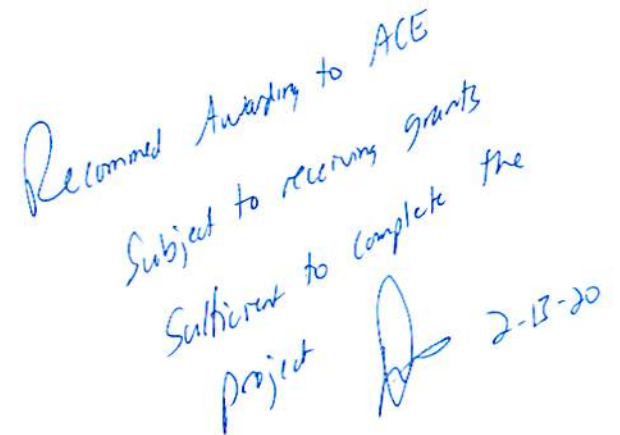 Recommed Awarding to ACE
Subject to receiving grants
Sufficient to complete the
project 2-13-20